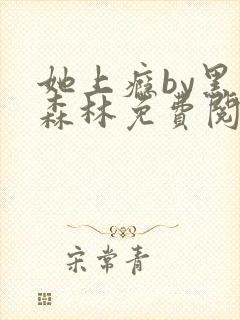 她上瘾by黑
森林免費閱
宋常青